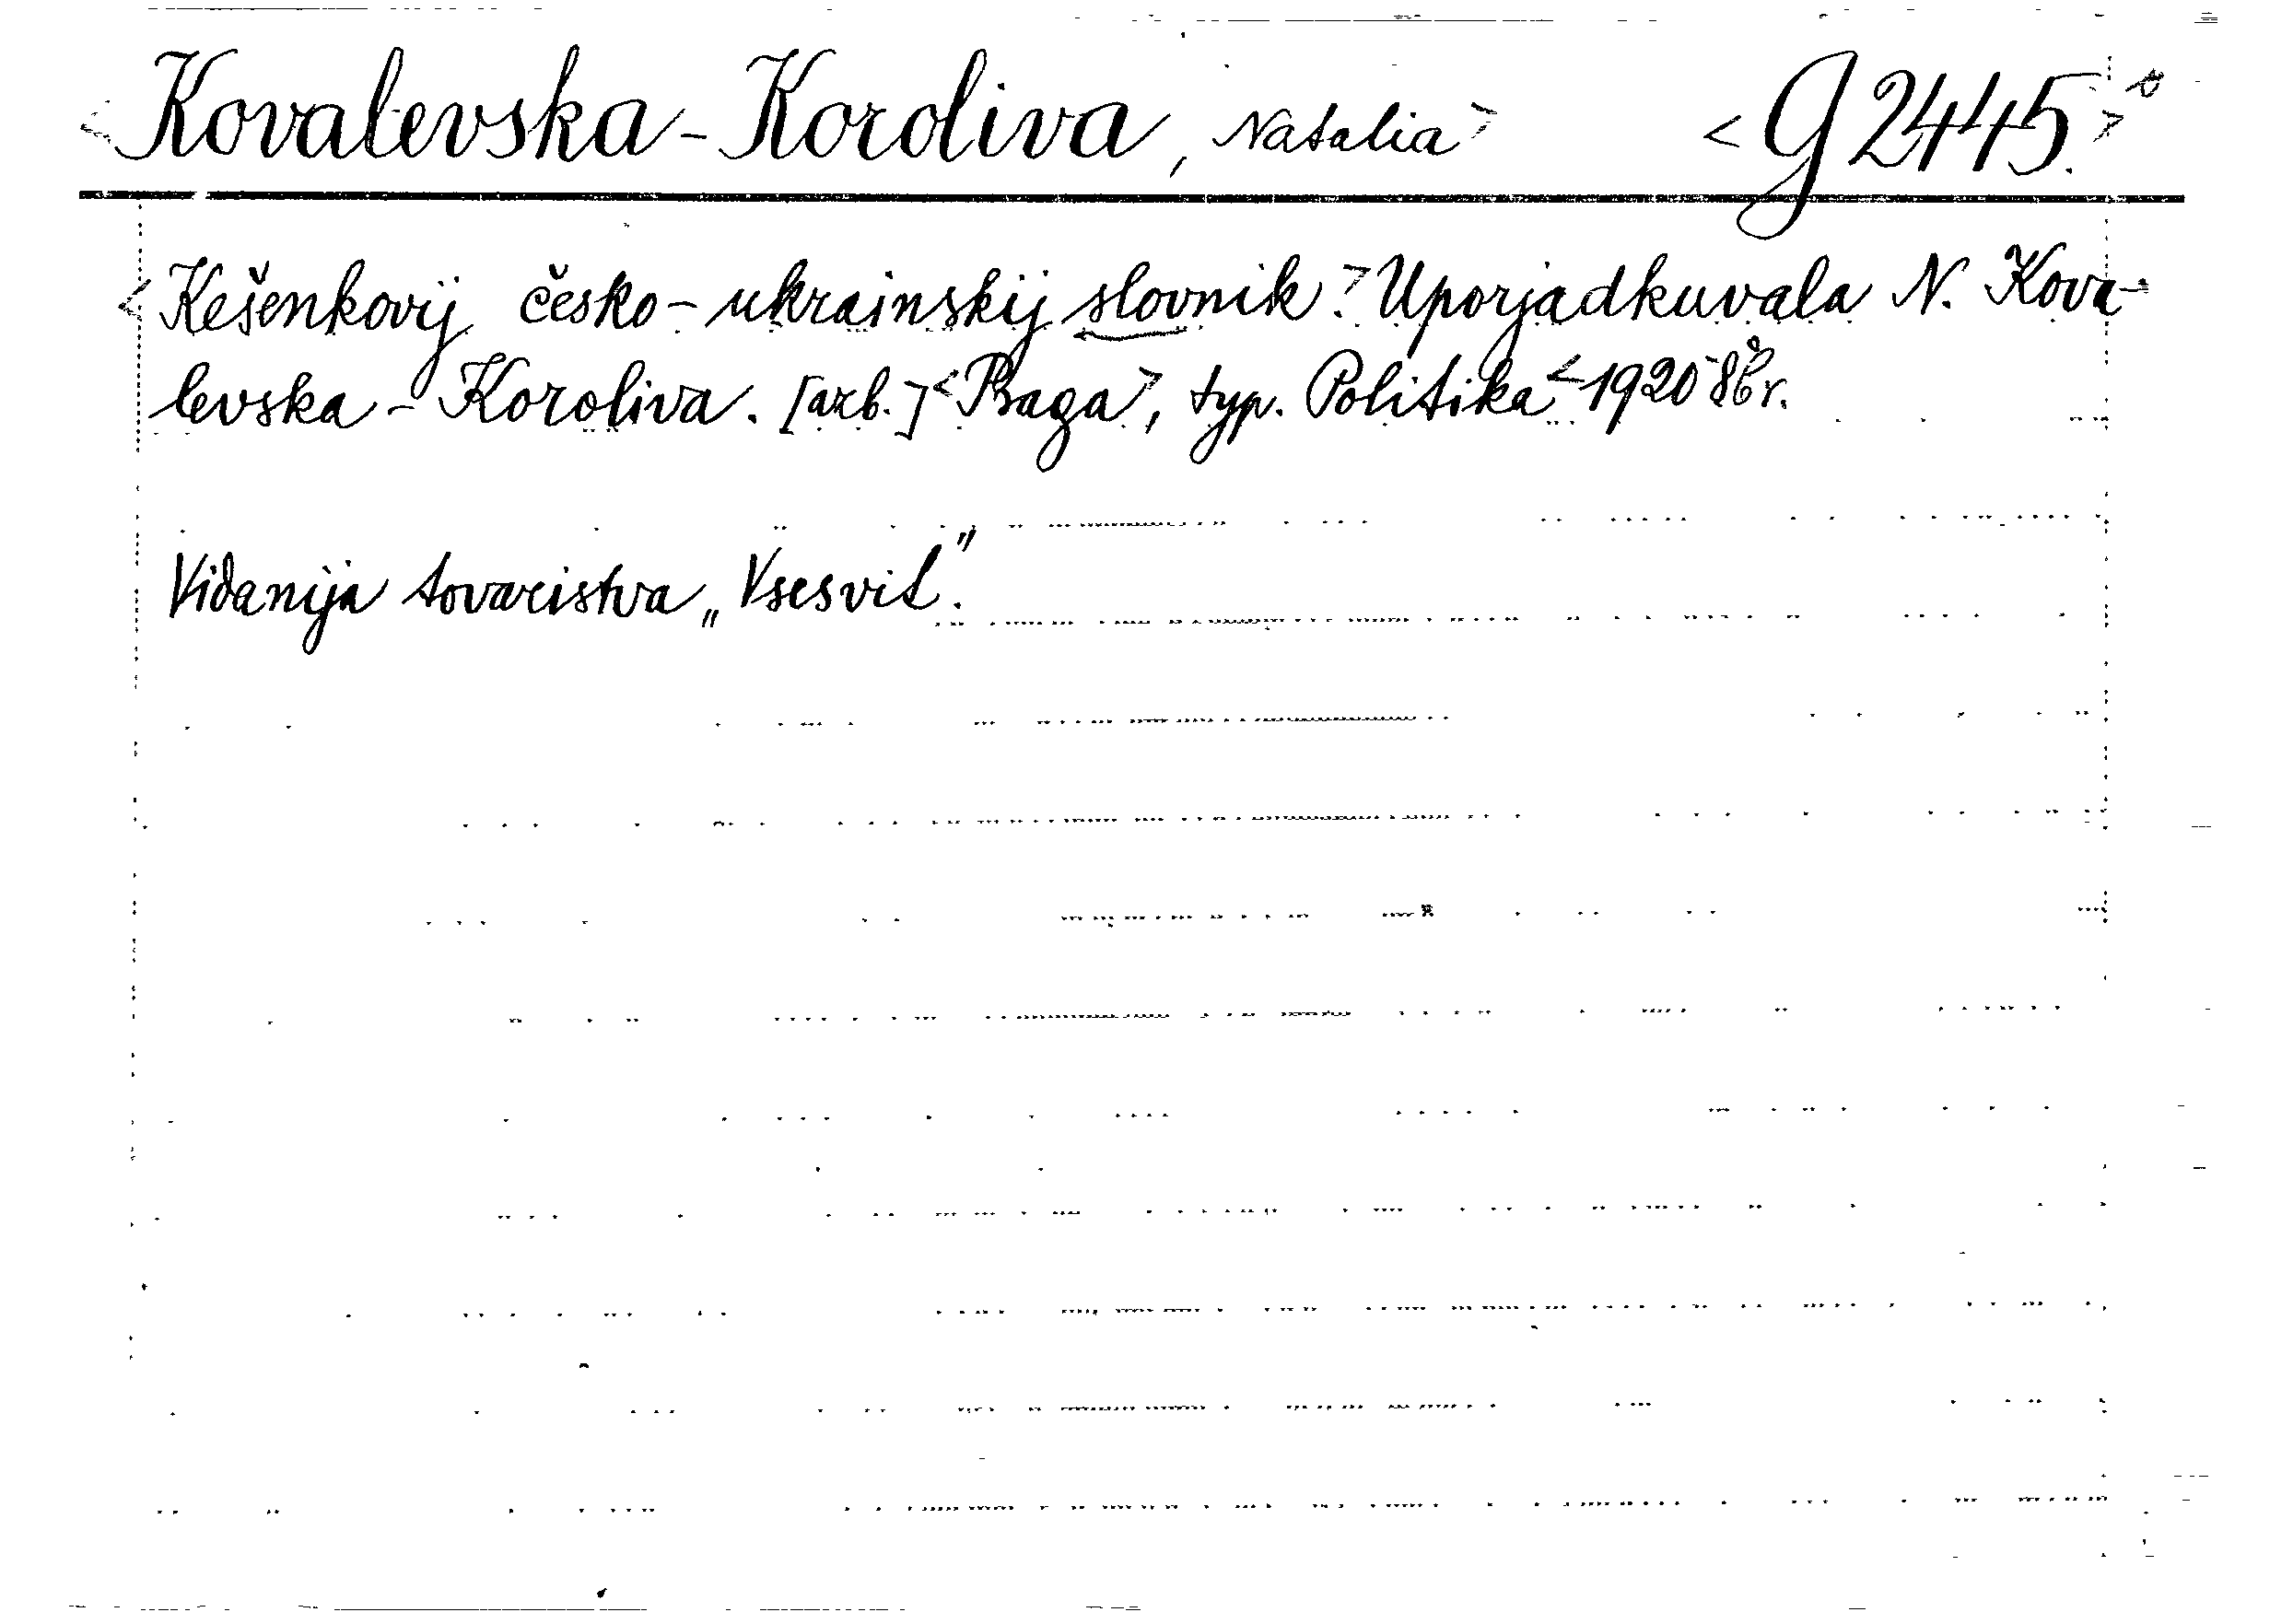 <Kovalevska-Koroliva, Natalia> <G 2445.>
<Kešenkovij česko-ukrainskij slovnik.> Uporjadkuvala N. Kova-
levska-Koroliva. [azb.] <Praga>, typ. Politika <1920 8° r.
Vidanija tovaristva „Vsesvit".